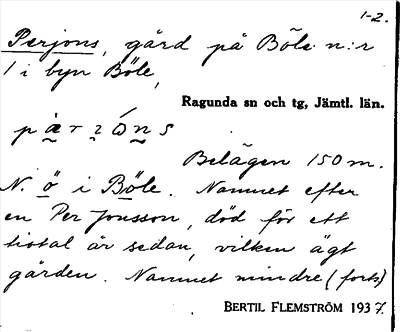 1-2.
Perjons, gård på Böle n:r
1 i byn Böle,
Ragunda sn och tg, Jämtl. län.
Belägen 150 m.
N. ö i Böle. Namnet efter
en Per Jonsson, död för ett
tiotal år sedan, vilken ägt
gården. Namnet mindre (forts)
BERTIL FLEMSTRÖM 1937.